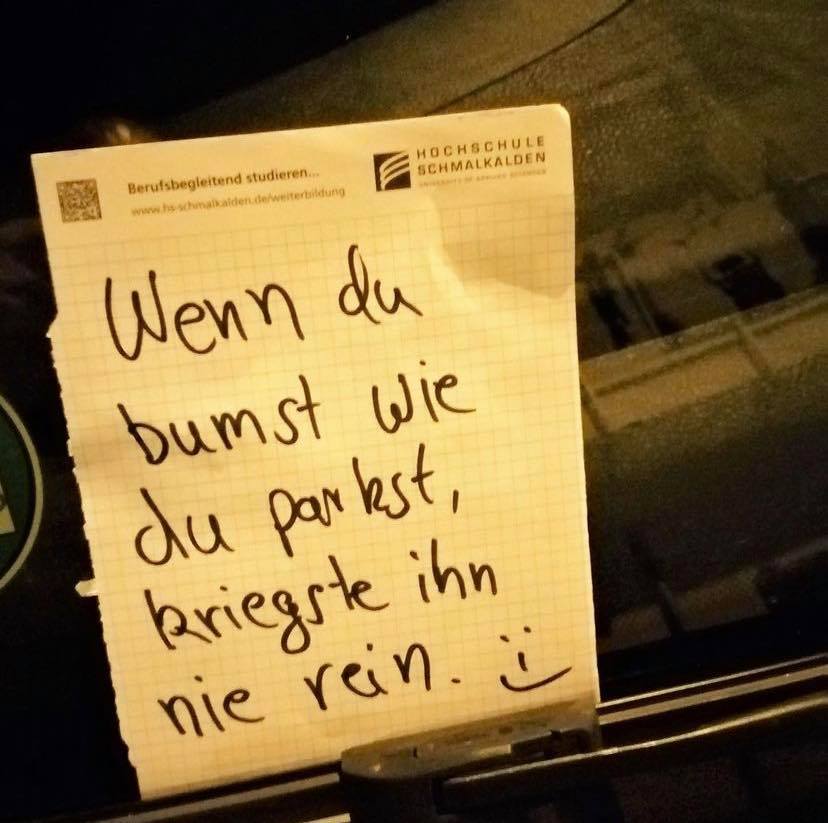 Berufsbegleitend studieren...
www.hs-schmalkalden.de/weiterbildung
HOCHSCHULE
SCHMALKALDEN
UNIVERSITY OF APPLIED SCIENCES
Wenn du
bumst wie
du parkst,
kriegste ihn
nie rein.